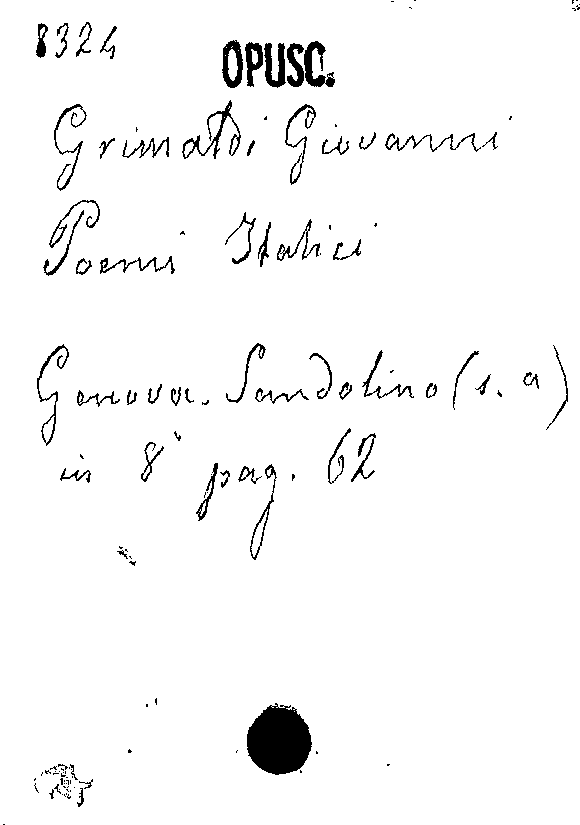 8324
OPUSC.
Grimaldi Giovanni
Poemi Italici
Genova. Sandolino (s. a)
in 8° pag. 62